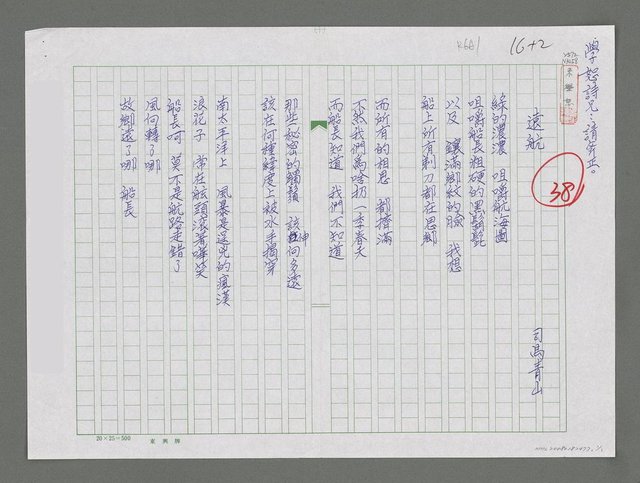 學恕詩兄:請斧正。
遠航
司馬青山
綠的濃濃 咀嚼航海圖
咀嚼船長粗硬的黑鬍髭
以及 鑲滿鄉紋的臉 我想
船上所有剃刀都在思鄉
而所有的相思 都擠滿
不然我們為啥扔一季春天
而船長知道 我們不知道
那些秘密的觸鬚 該伸向多遠
該在何種緯度上被水手揭穿
南太平洋上 風暴是逞兇的瘋漢
浪花子 常在舷頭滾著嘩笑
船長可 莫不是航路走錯了
風向轉了哪
故鄉遠了哪 船長
38
16+2
20×25=500